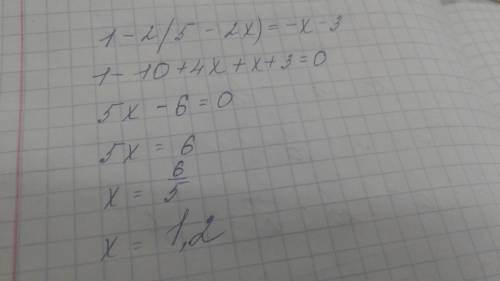 1 - 2(5 - 2x) = -x - 3
1 - 10 + 4x + x + 3 = 0
5x - 6 = 0
5x = 6
x = 6/5
x = 1,2